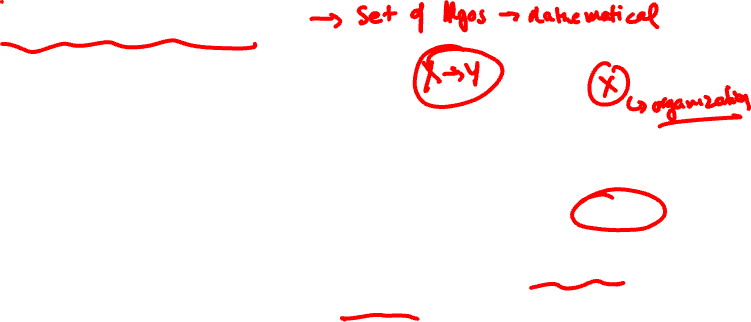 → Set of Algos → Mathematical
X → Y
X
↳ organization